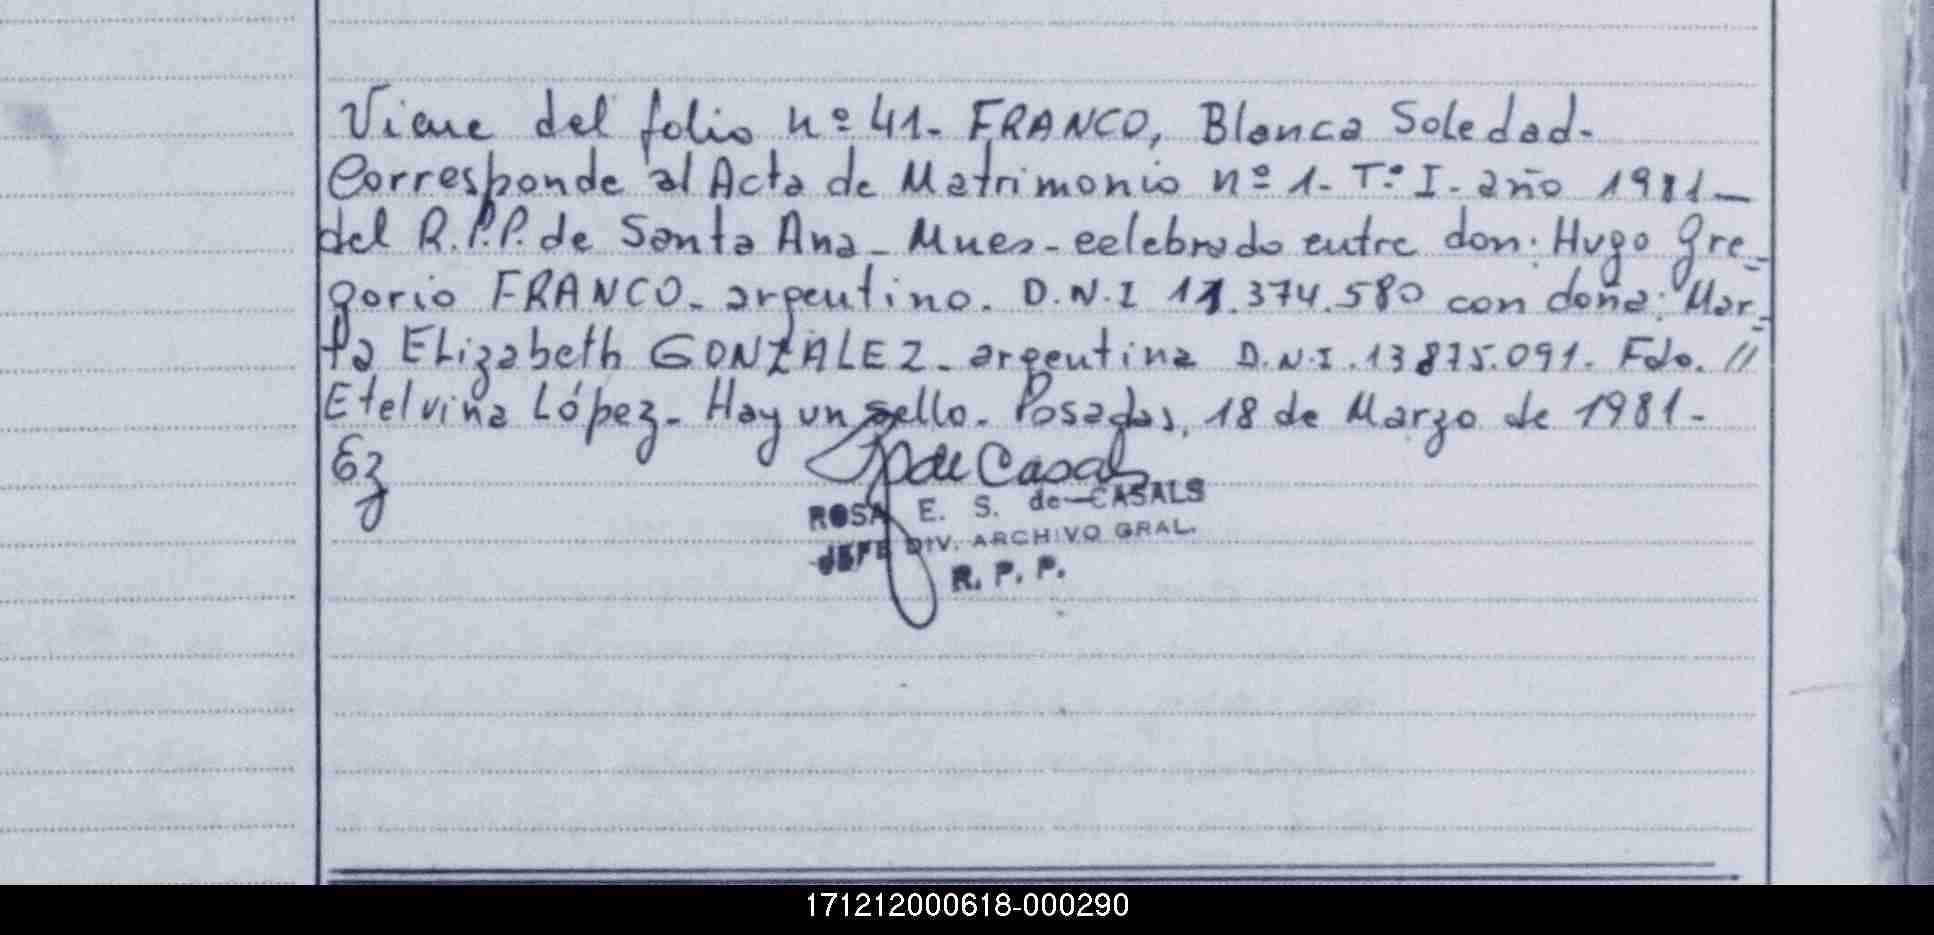 Viene del folio nº 41. FRANCO, Blanca Soledad.
Corresponde al Acta de Matrimonio nº 1. Tº I. año 1981 —
del R.P.P. de Santa Ana - Mnes - celebrado entre don: Hugo Gre=
gorio FRANCO. argentino. D.N.I 11.374.580 con doña: Mar=
ta ELizabeth GONZALEZ. argentina D.N.I. 13875.091. Fdo. //
Etelvina López. Hay un sello. Posadas, 18 de Marzo de 1981.
de Casals
ROSA E. S. de CASALS
JEFE DIV. ARCHIVO GRAL.
R. P. P.
171212000618-000290